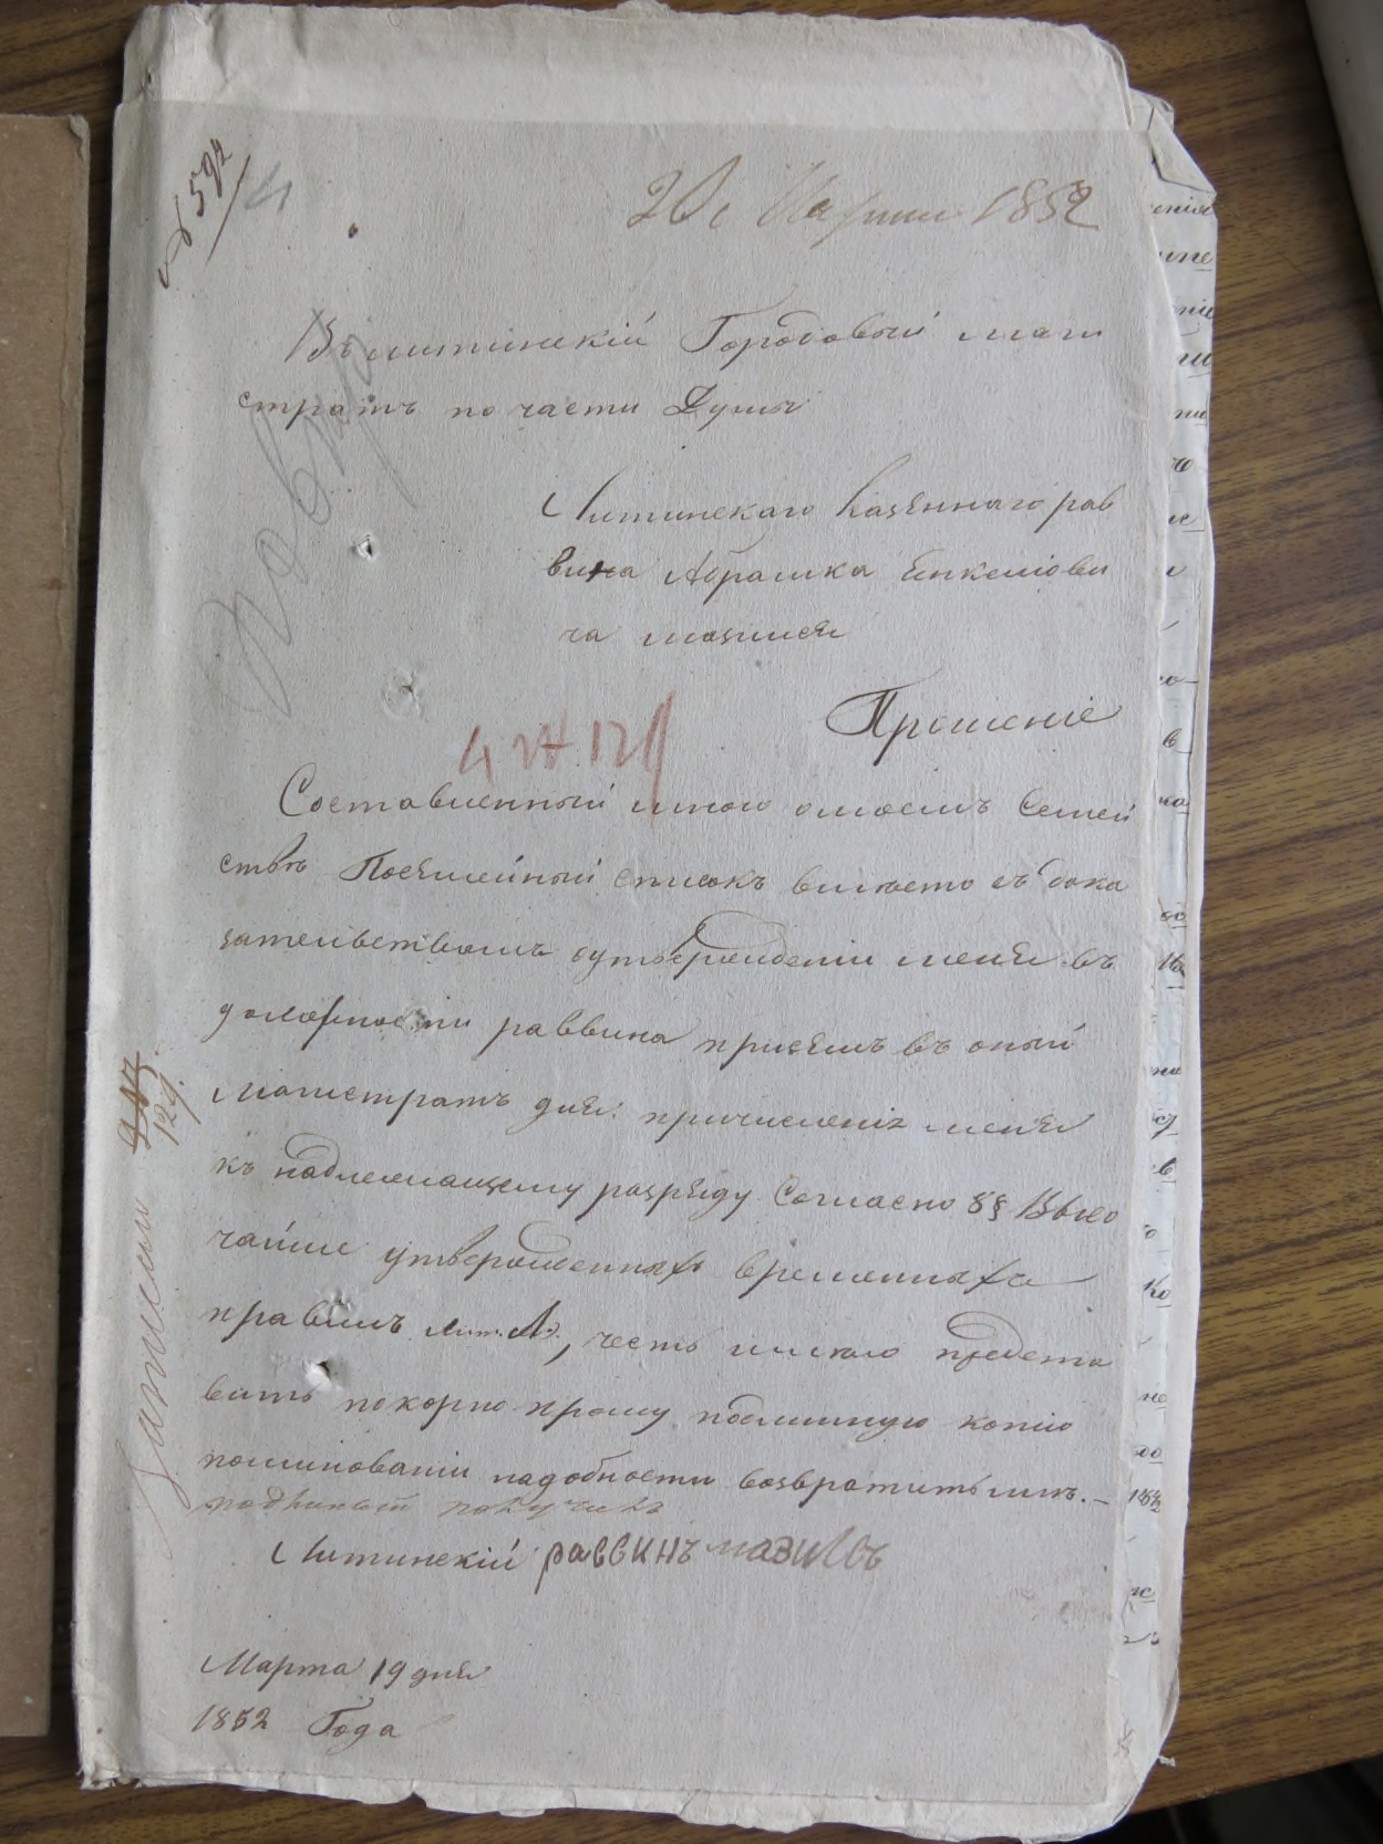 № 592
4
20 Марта 1852
Въ литинскій Городовый маги
стратъ по части Думы
Литинскаго Казеннаго рав
вина Абрашка Янкеліови
ча мазиля
Прошеніе
Составленный мною омоемъ Семей
ствѣ Посемейный списокъ вмѣсто съ дока
зательствомъ оутвержденіи меня въ
должности раввина присемъ въ оный
Магистратъ для причисленія меня
къ надлежащему разряду Согласно §§ Высо
чайше утвержденныхъ временныхъ
правилъ Лит. А., честь имѣю предста
вить покорно прошу подлинную копію
поминованіи надобности возвратить мнѣ. –
подлинный получилъ
Литинскій раввинъ мазилъ
Марта 19 дня
1852 Года
129.